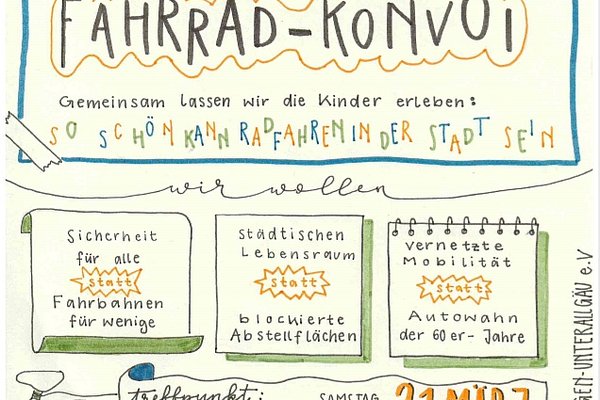 FAHRRAD-KONVOI
Gemeinsam lassen wir die Kinder erleben:
SO SCHÖN KANN RADFAHREN IN DER STADT SEIN
wir wollen
Sicherheit
für alle
statt
Fahrbahnen
für wenige
städtischen
Lebensraum
statt
blockierte
Abstellflächen
vernetzte
Mobilität
statt
Autowahn
der 60er-Jahre
Treffpunkt:
SAMSTAG
21. MÄRZ
GEN-UNTERALLGÄU e.V